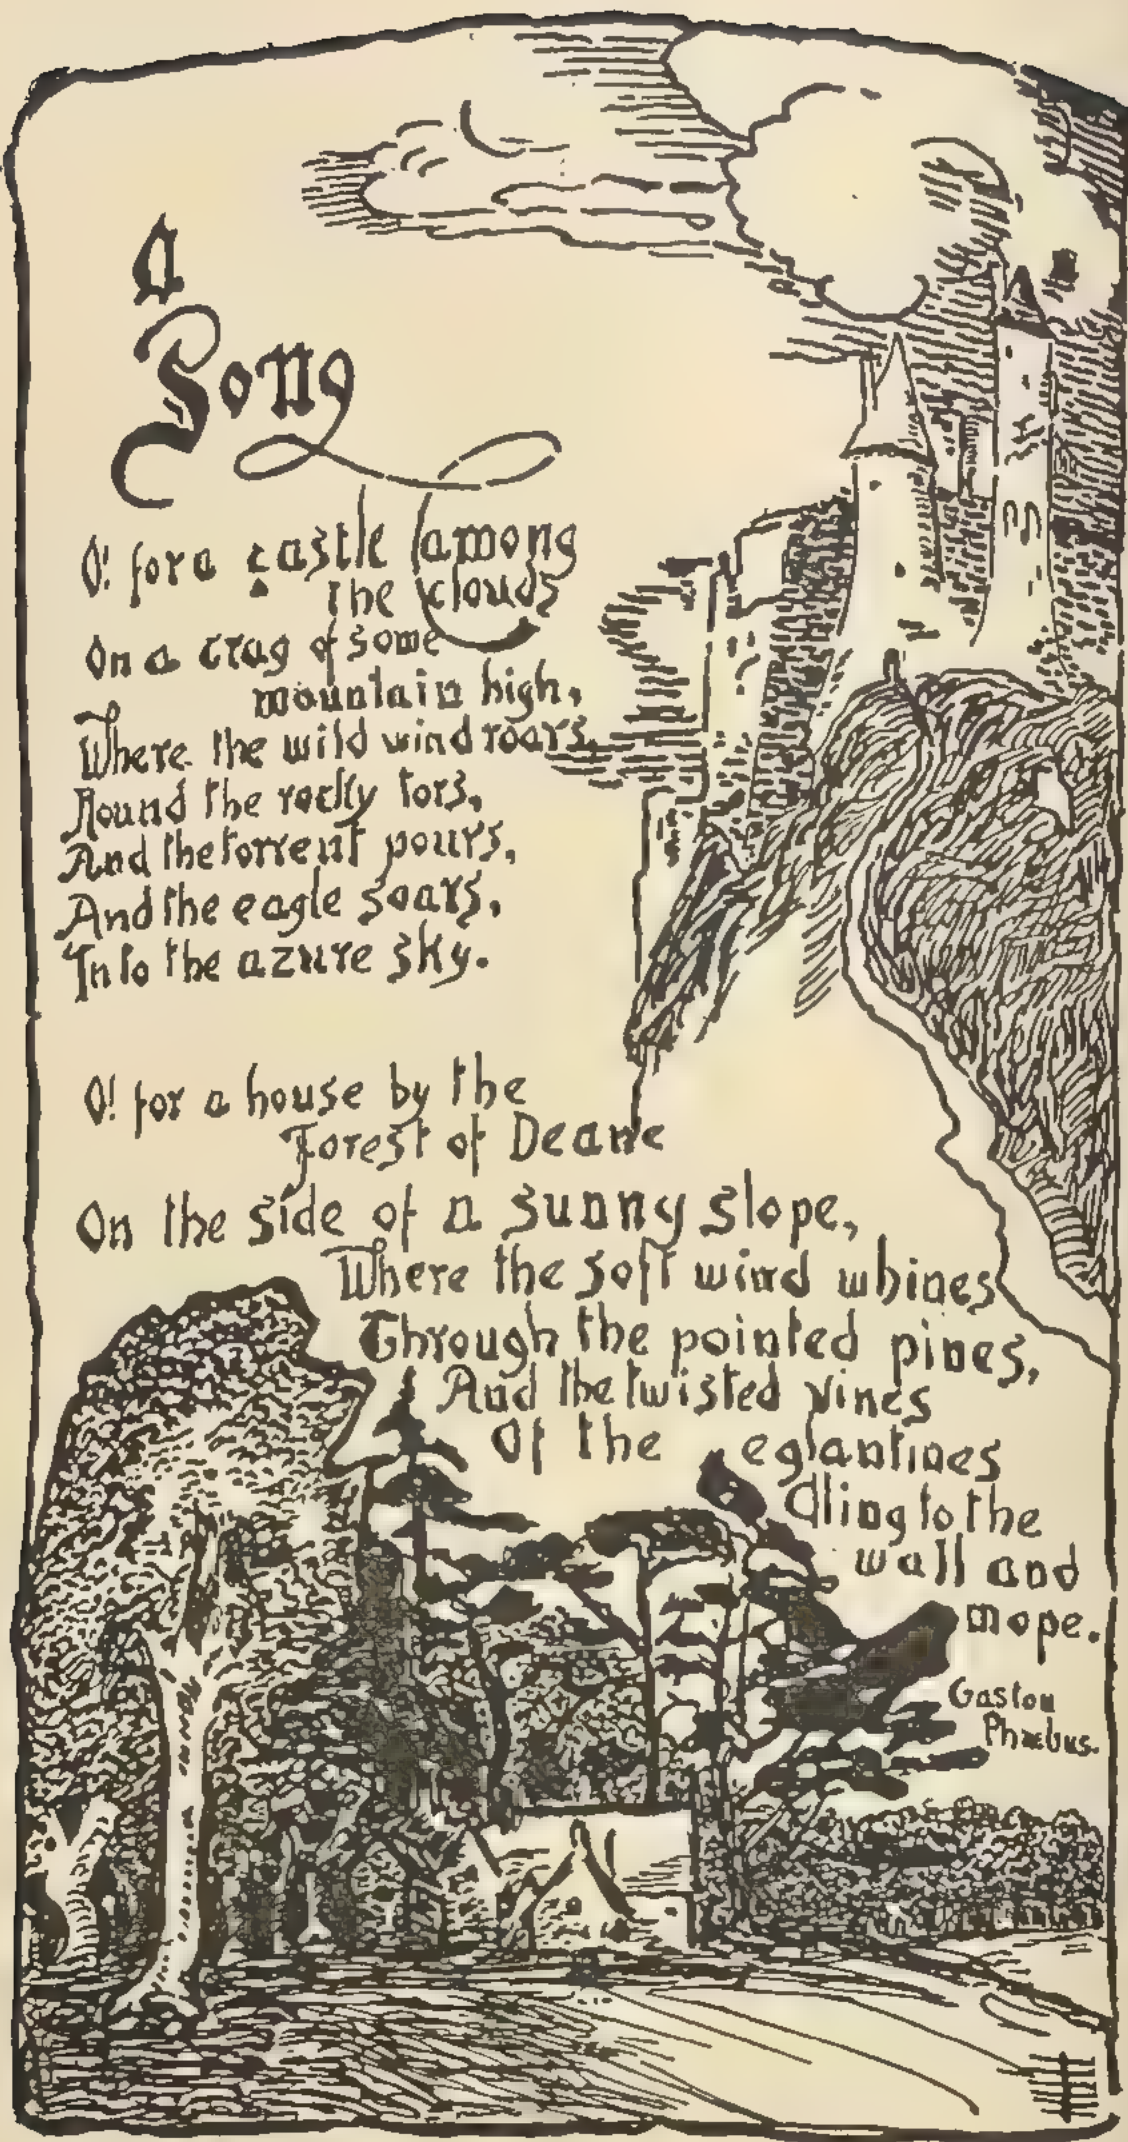 A
Song
O! for a castle among
the clouds
On a crag of some
mountain high,
Where the wild wind roars,
Round the rocky tors,
And the torrent pours,
And the eagle soars,
Into the azure sky.
O! for a house by the
Forest of Deane
On the side of a sunny slope,
Where the soft wind whines
Through the pointed pines,
And the twisted vines
Of the eglantines
Cling to the
wall and
mope.
Gaston
Phœbus.